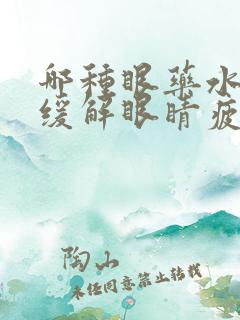 哪種眼藥水
緩解眼睛疲
陶山
未經同意禁止轉載